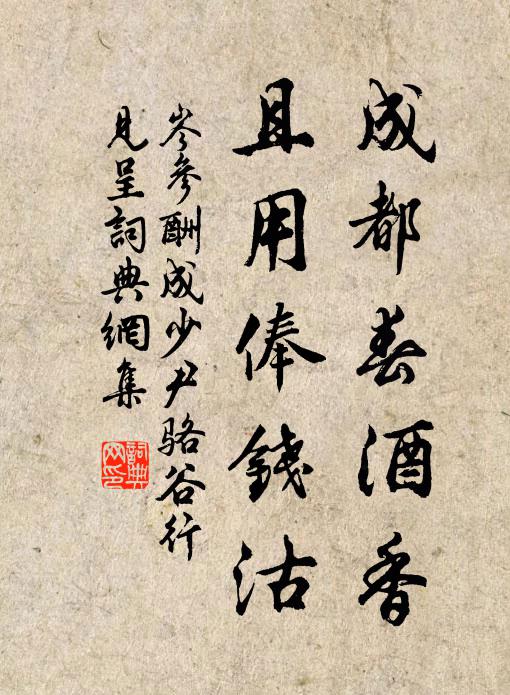 成都春酒香
且用俸錢沽
岑參酬成少尹駱谷行
見呈詞典網集
詞典
网印